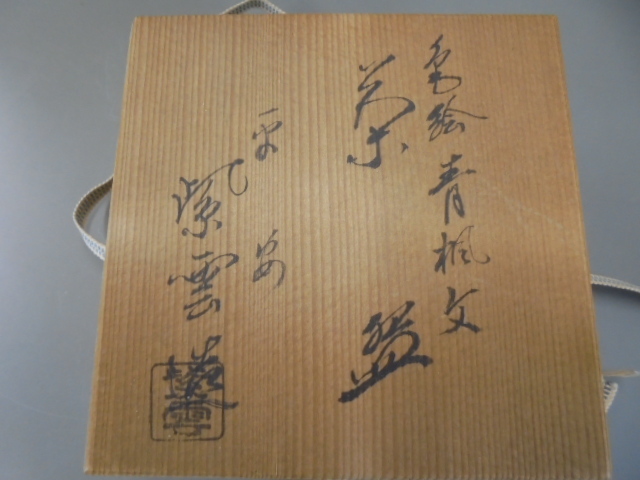 色絵青楓文
菓盆
平安
紫雲